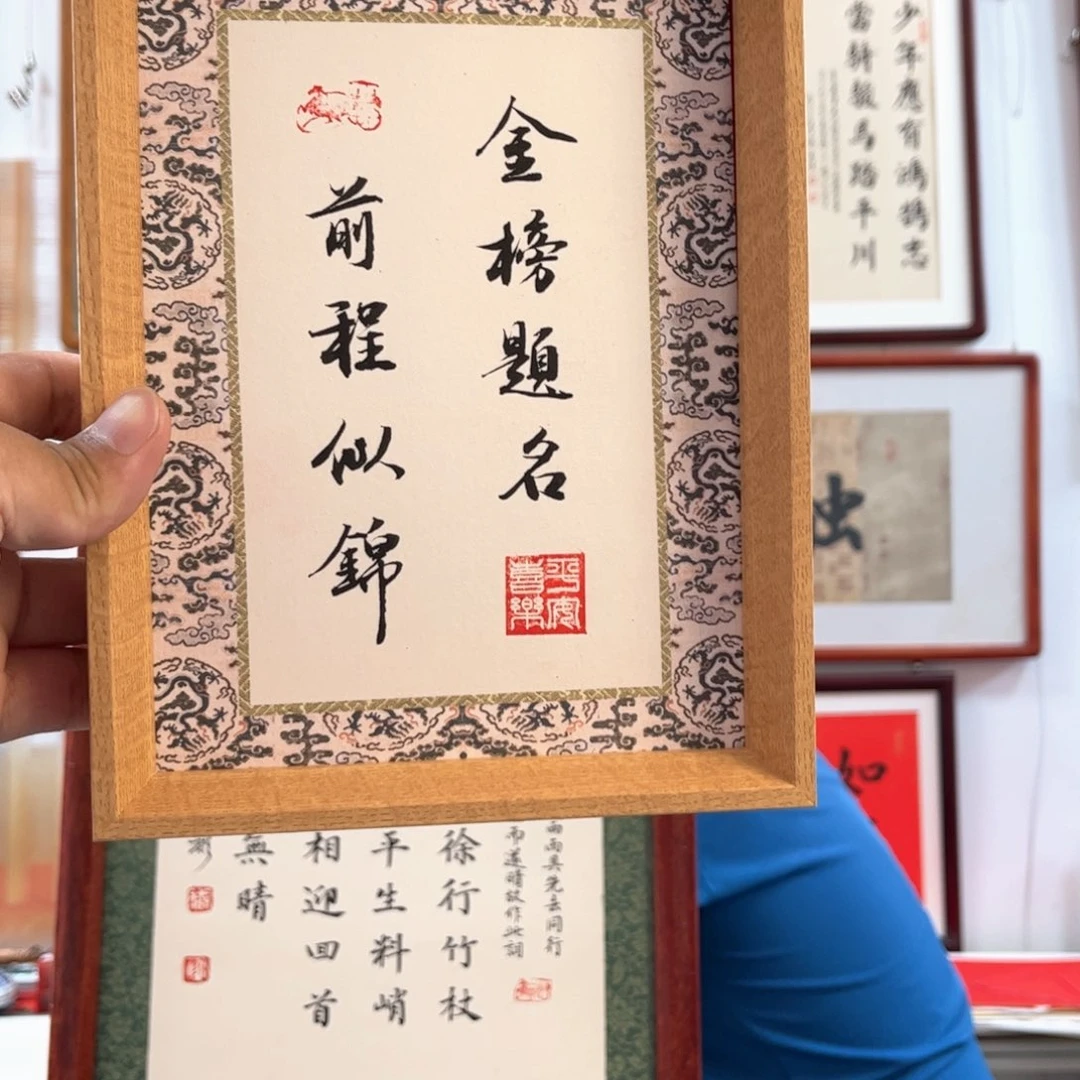 金榜題名
前程似錦
平安
喜樂
少年應有鴻鵠志
當騎駿馬踏平川
雨雨具先去同行
而遂晴故作此詞
徐行竹杖
平生料峭
相迎回首
無晴
如